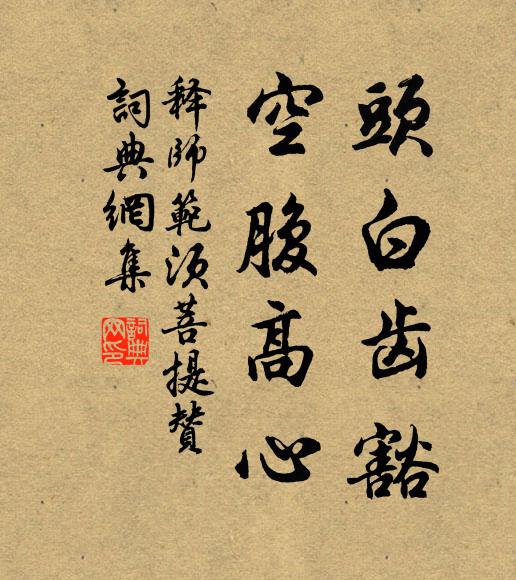 頭白齿豁
空腹高心
释師範須菩提贊
詞典網集
詞典網印